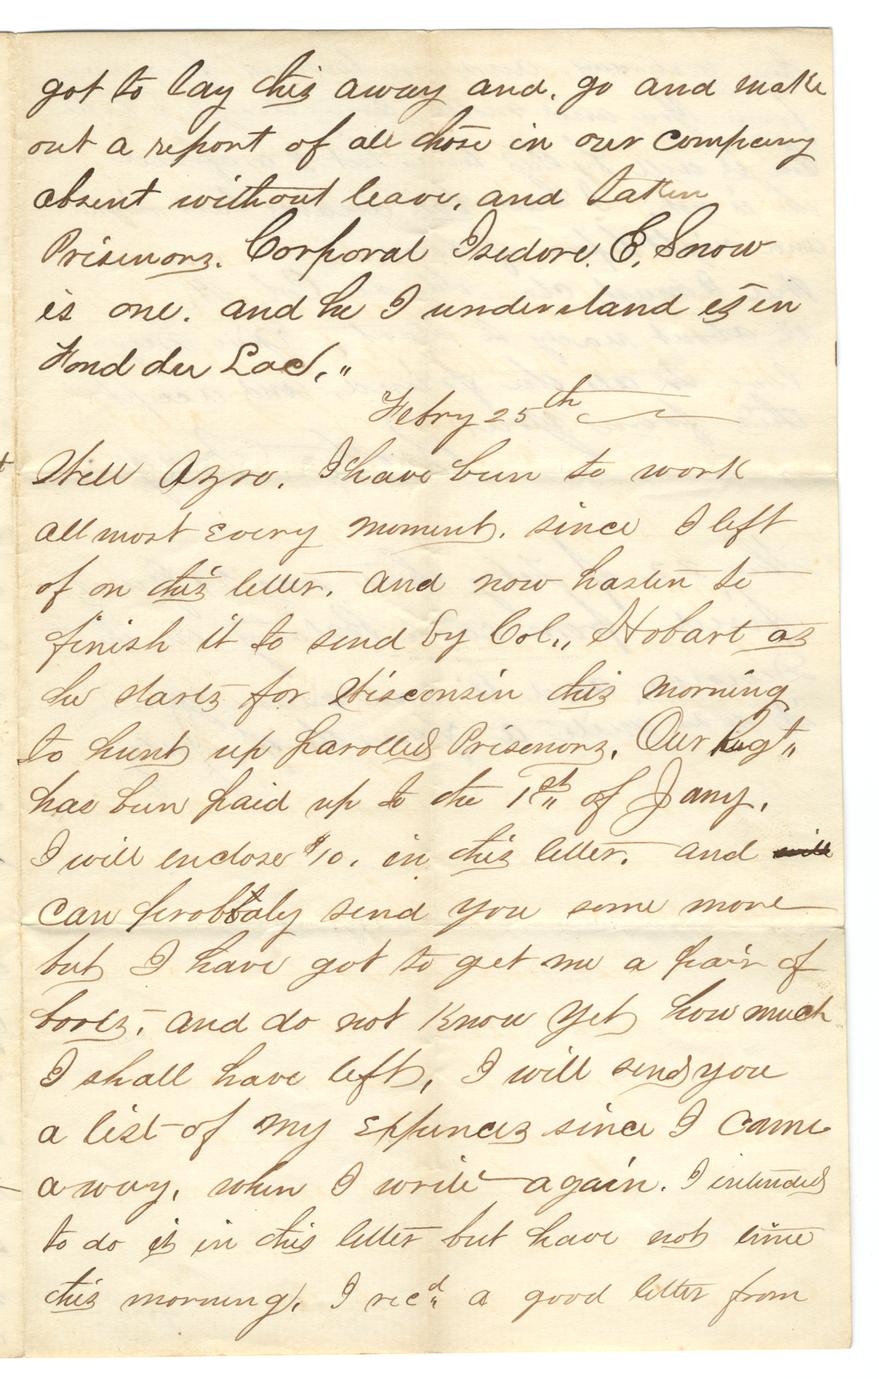 got to lay this away and, go and make
out a report of all those in our company
absent without leave, and taken
Prisenors. Corporal Isedore. E, Snow
is one. and he I understand is in
Fond du Lac,"
Febry 25th
Well Azro, I have bun to work
allmost every moment, since I left
of on this letter, and now hasten to
finish it to send by Col,, Hobart as
he starts for Wisconsin this morning
to hunt up parolled Prisenors, Our Regt,,
has bun paid up to the 1st,, of Jany,
I will enclose $10, in this letter, and will
can probbaly send you some more
but I have got to get me a pair of
boots, and do not Know Yet how much
I shall have left, I will send you
a list of my Expences since I came
away, when I write again. I intended
to do it in this letter but have not time
this morning, I recd,, a good letter from